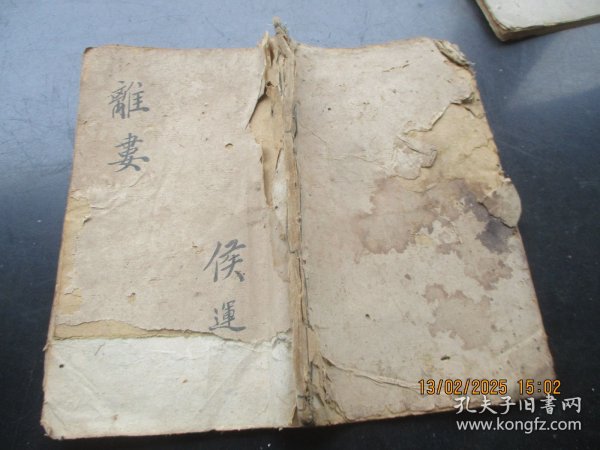 離婁
侯運
13/02/2025 15:02
孔夫子旧書网
www.kongfz.com